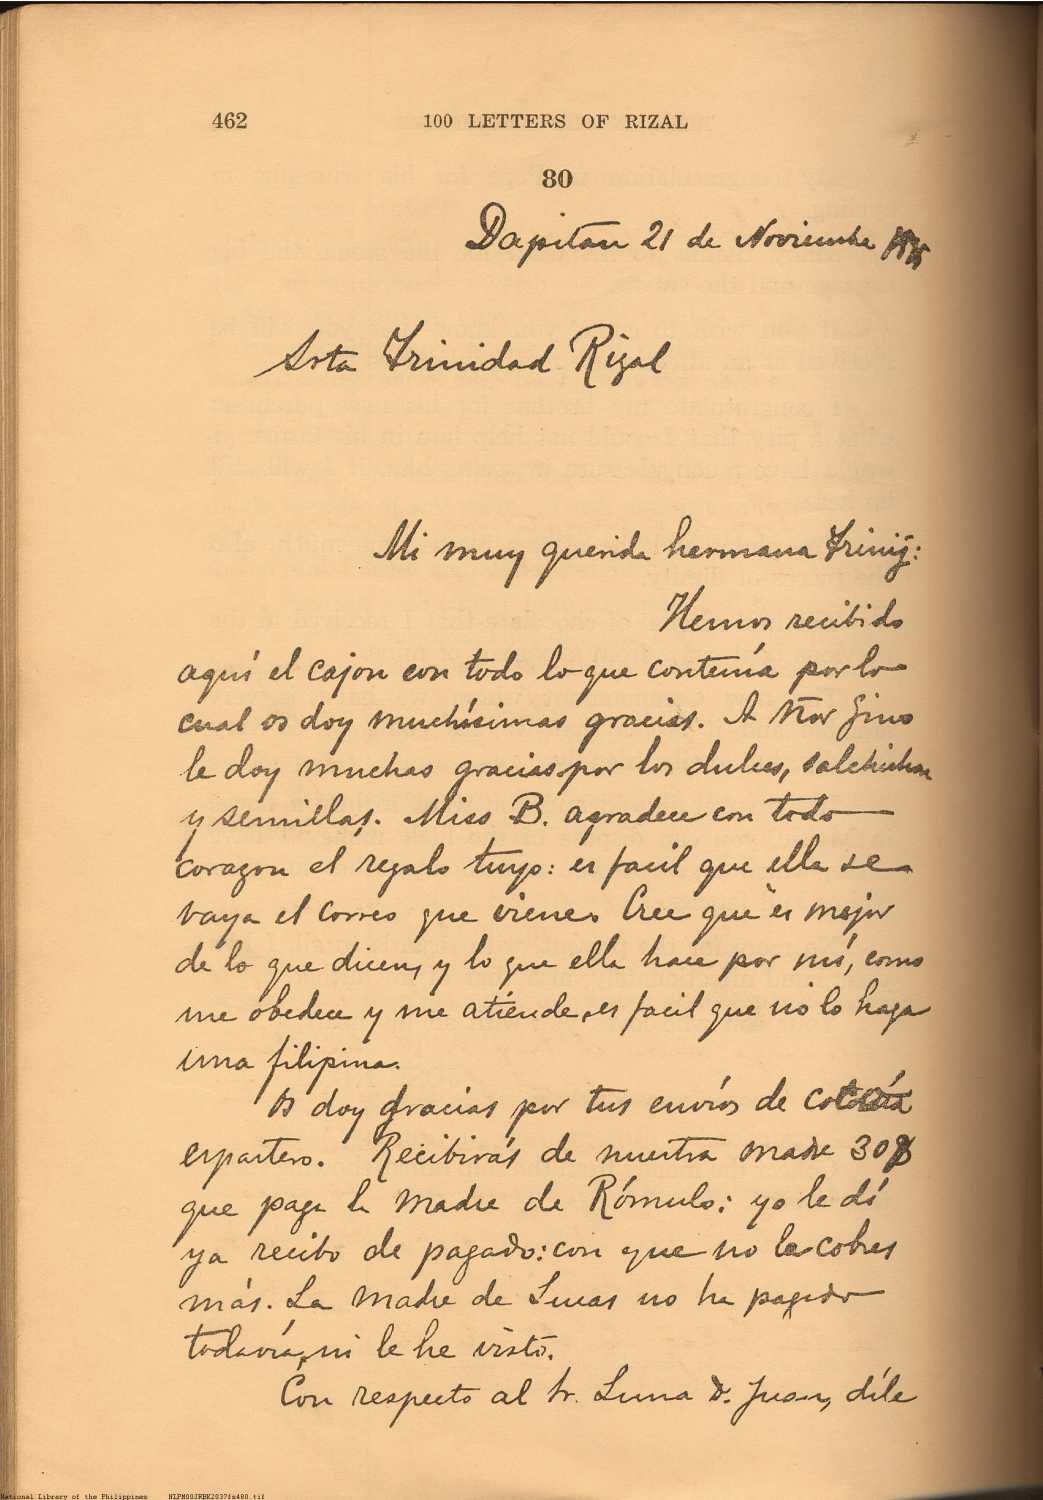 462 100 LETTERS OF RIZAL
80
Dapitan 21 de Noviembre
Srta Trinidad Rizal
Mi muy querida hermana Trining:
Hemos recibido
aquí el cajon con todo lo que contenía por lo
cual os doy muchísimas gracias. A Ñor Gino
le doy muchas gracias por los dulces, salchichas
y semillas. Miss B. agradece con todo
corazon el regalo tuyo: es facil que ella se
vaya el correo que viene. Cree que es mejor
de lo que dicen, y lo que ella hace por mí, como
me obedece y me atiende, es facil que no lo haga
una filipina.
Os doy gracias por tus envíos de
espartero. Recibirás de nuestra madre 30$
que paga la madre de Rómulo; yo le dí
ya recibo de pagado: con que no le cobres
más. La madre de Lucas no ha pagado
todavía, ni le he visto.
Con respecto al Sr. Luna D. Juan, díle
National Library of the Philippines NLPM00JRBK2037fs480.tif